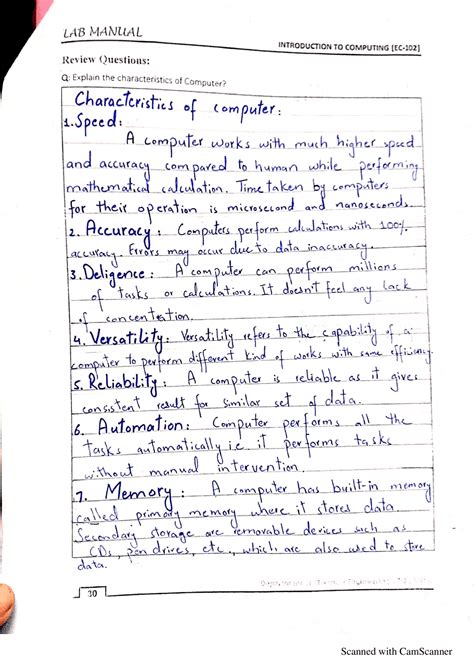 LAB MANUAL
INTRODUCTION TO COMPUTING [EC-102]
Review Questions:
Q: Explain the characteristics of Computer?
Characteristics of computer:
1. Speed:
A computer works with much higher speed
and accuracy compared to human while performing
mathematical calculation. Time taken by computers
for their operation is microsecond and nanoseconds.
2. Accuracy: Computers perform calculations with 100%
accuracy. Errors may occur due to data inaccuracy.
3. Deligence: A computer can perform millions
of tasks or calculations. It doesn't feel any lack
of concentration.
4. Versatility: Versatility refers to the capability of a
computer to perform different kind of works with same efficiency.
5. Reliability: A computer is reliable as it gives
consistent result for similar set of data.
6. Automation: Computer performs all the
tasks automatically i.e it performs tasks
without manual intervention.
7. Memory: A computer has built-in memory
called primary memory where it stores data.
Secondary storage are removable devices such as
CDs, pen drives, etc, which are also used to store
data.
30
Scanned with CamScanner